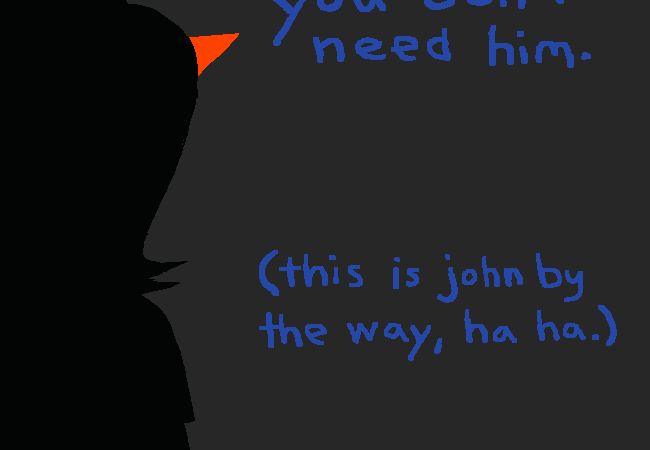 you
need him.
(this is john by
the way, ha ha.)